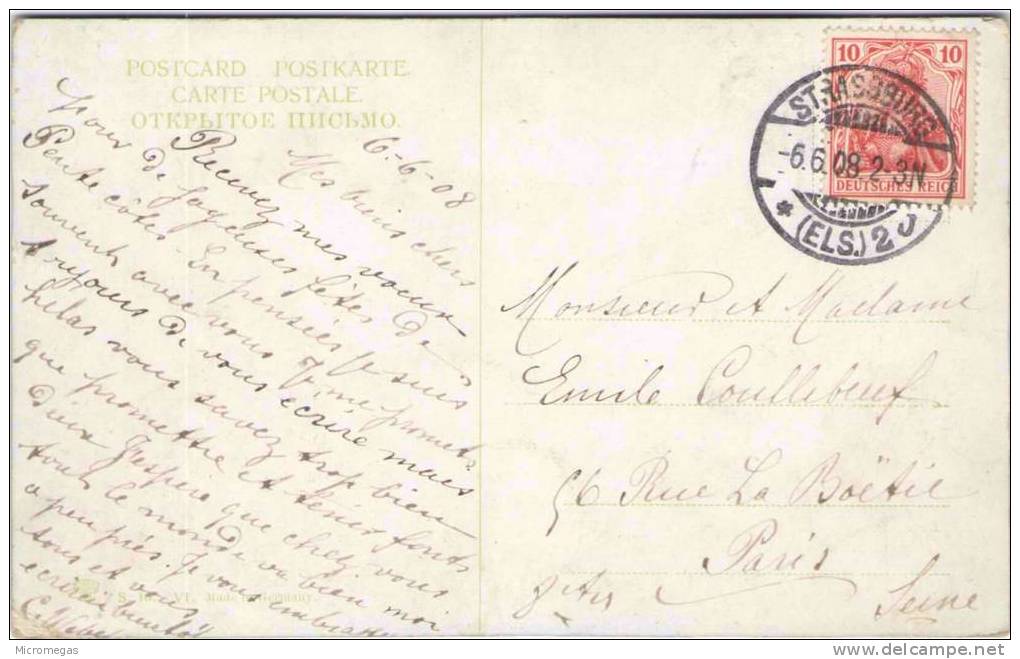 POSTCARD POSTKARTE.
CARTE POSTALE.
ОТКРЫТОЕ ПИСЬМО.
6-6-08
Mes biens chers
Recevez mes voeux
de joyeuses fêtes de
Pentecôtes. En pensées je suis
souvent avec vous
toujours de vous écrire mais
hélas vous savez trop bien
que promettre et tenir font
deux J'espère que chez vous
tout le monde va bien moi
a peu près. Je vous embrasse
tous et vous
écrirai bientôt
S. VI. Made in Germany.
10 10
DEUTSCHES REICH
STRASSBURG
-6.6.08.2-3N
* (ELS.) 2
Monsieur et Madame
Emile Coulleboeuf
56 Rue La Boëtie
Paris
8 Arr
Seine
Micromegas
delcampe.net